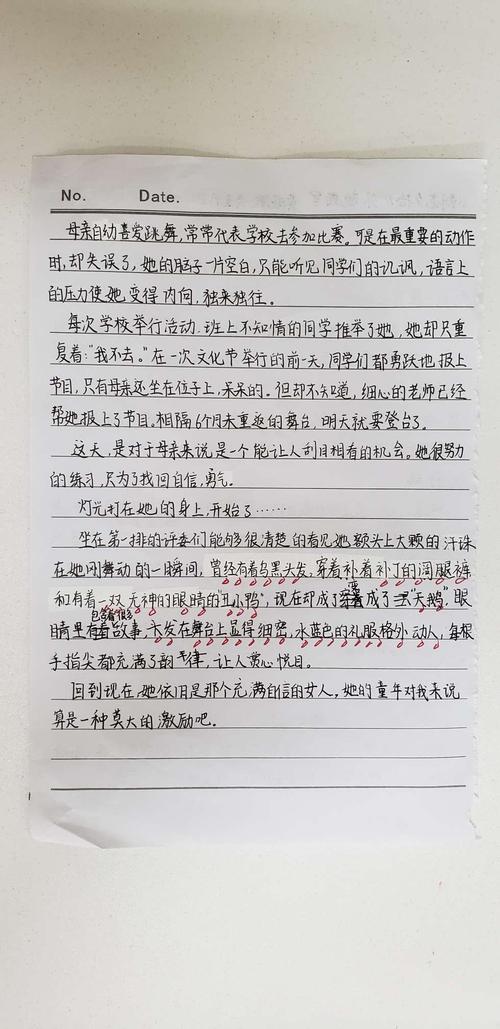 No. Date.
母亲自幼喜爱跳舞,常常代表学校去参加比赛。可是在最重要的动作
时,却失误了,她的脑子一片空白,只能听见同学们的讥讽,语言上
的压力使她变得内向,独来独往。
每次学校举行活动.班上不知情的同学推举了她,她却只重
复着:“我不去。”在一次文化节举行的前一天,同学们都勇跃地报上
节目,只有母亲还坐在位子上,呆呆的。但却不知道,细心的老师已经
帮她报上了节目。相隔6个月未重返的舞台,明天就要登台了。
这天,是对于母亲来说是一个能让人刮目相看的机会。她很努力
的练习,只为了找回自信,勇气。
灯光打在她的身上,开始了……
坐在第一排的评委们能够很清楚的看见她额头上大颗的汗珠
在她刚舞动的一瞬间,曾经有着乌黑头发,穿着补着补丁的阔腿裤
和有着一双无神的眼睛的“丑小鸭”,现在却成了变成了“天鹅”眼
睛里包含很多故事,头发在舞台上显得细密,水蓝色的礼服格外动人,每根
手指尖都充满了韵律,让人赏心悦目。
回到现在,她依旧是那个充满自信的女人。她的童年对我来说
算是一种莫大的激励吧。